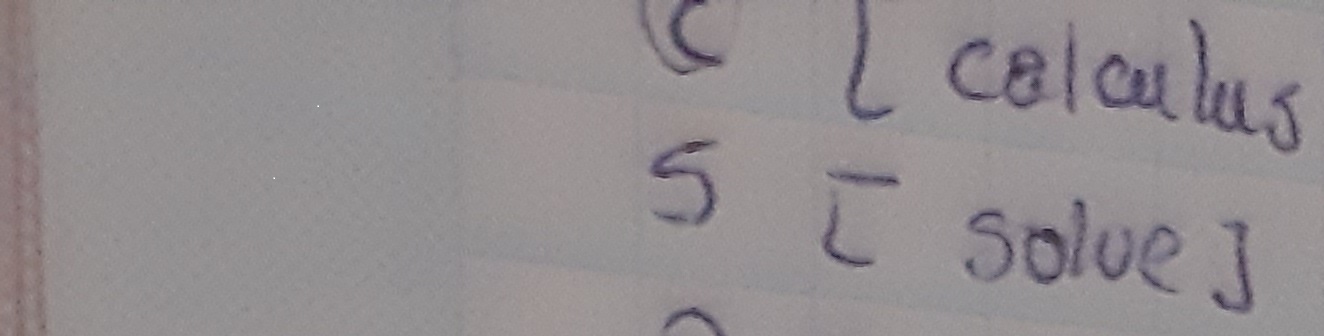 C [ calculus
S [ solve ]